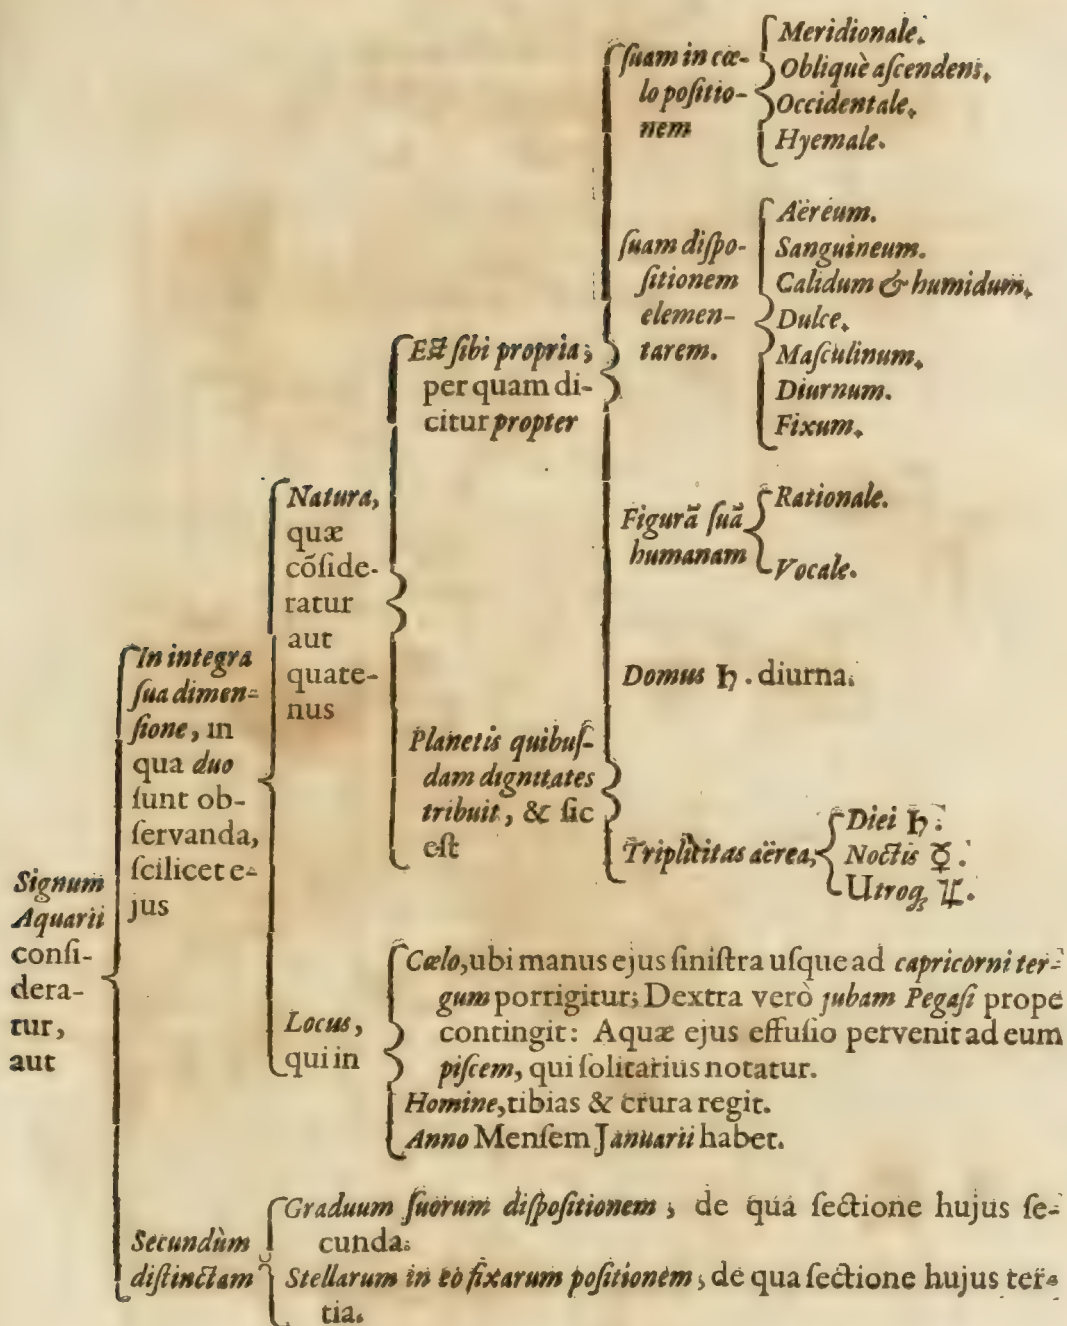 Signum
Aquarii
conſi-
dera-
tur,
aut
In integra
ſua dimen-
ſione, in
qua duo
ſunt ob-
ſervanda,
ſcilicet e-
jus
Natura,
quæ
cõſide-
ratur
aut
quate-
nus
Eſt ſibi propria;
per quam di-
citur propter
ſuam in cœ-
lo poſitio-
nem
Meridionale.
Obliquè aſcendens.
Occidentale.
Hyemale.
ſuam diſpo-
ſitionem
elemen-
tarem.
Aëreum.
Sanguineum.
Calidum & humidum.
Dulce.
Maſculinum.
Diurnum.
Fixum.
Figurã ſuã
humanam
Rationale.
Vocale.
Planetis quibuſ-
dam dignitates
tribuit, & ſic
eſt
Domus ♄. diurna.
Triplicitas aërea,
Diei ♄.
Noctis ☿.
Utroq; ♃.
Locus,
qui in
Cœlo, ubi manus ejus ſiniſtra uſque ad capricorni ter-
gum porrigitur; Dextra verò jubam Pegaſi prope
contingit: Aquæ ejus effuſio pervenit ad eum
piſcem, qui ſolitarius notatur.
Homine, tibias & crura regit.
Anno Menſem Januarii habet.
Secundùm
diſtinctam
Graduum ſuorum diſpoſitionem; de qua ſectione hujus ſe-
cunda.
Stellarum in eo fixarum poſitionem; de qua ſectione hujus ter-
tia.